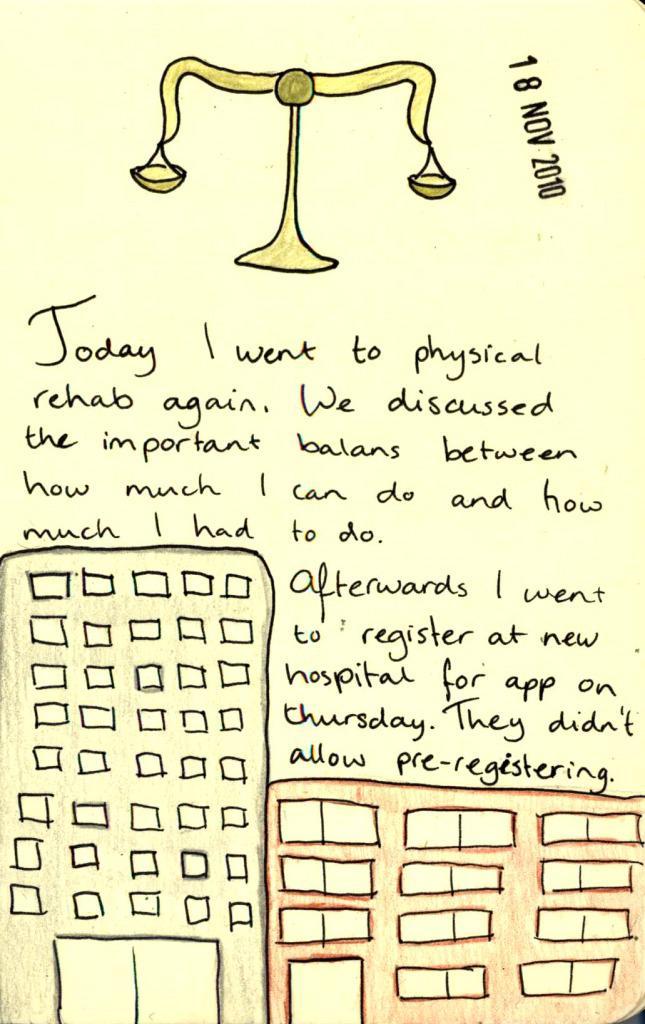 18 NOV 2010
Today I went to physical
rehab again. We discussed
the important balans between
how much I can do and how
much I had to do.
Afterwards I went
to register at new
hospital for app on
thursday. They didn't
allow pre-registering.